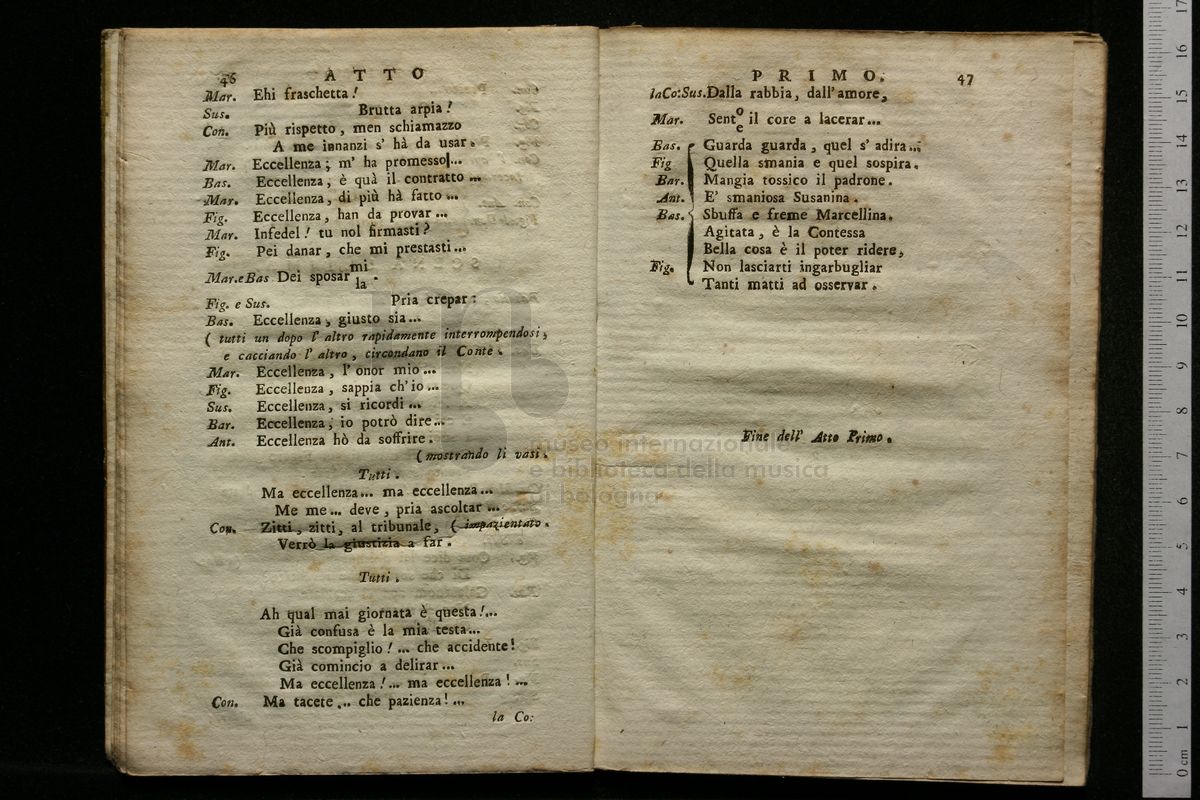 46 ATTO
Mar. Ehi fraschetta!
Sus. Brutta arpia!
Con. Più rispetto, men schiamazzo
A me innanzi s' hà da usar.
Mar. Eccellenza; m' ha promesso...
Bas. Eccellenza, è quà il contratto ...
Mar. Eccellenza, di più hà fatto ...
Fig. Eccellenza, han da provar ...
Mar. Infedel! tu nol firmasti?
Fig. Pei danar, che mi prestasti...
Mar. e Bas Dei sposar mi la .
Fig. e Sus. Pria crepar:
Bas. Eccellenza, giusto sia...
( tutti un dopo l' altro rapidamente interrompendosi,
e cacciando l' altro, circondano il Conte.
Mar. Eccellenza, l' onor mio ...
Fig. Eccellenza, sappia ch'io ...
Sus. Eccellenza, si ricordi ...
Bar. Eccellenza, io potrò dire...
Ant. Eccellenza hò da soffrire.
( mostrando li vasi.
Tutti.
Ma eccellenza... ma eccellenza...
Me me ... deve, pria ascoltar ...
Con. Zitti, zitti, al tribunale, ( impazientato.
Verrò la giustizia a far.
Tutti.
Ah qual mai giornata è questa!...
Già confusa è la mia testa...
Che scompiglio! ... che accidente!
Già comincio a delirar ...
Ma eccellenza!... ma eccellenza! ...
Con. Ma tacete ... che pazienza! ...
la Co:
PRIMO. 47
la Co: Sus. Dalla rabbia, dall' amore,
Mar. Sent o e il core a lacerar...
Bas. Guarda guarda, quel s' adira...
Fig Quella smania e quel sospira.
Bar. Mangia tossico il padrone.
Ant. E' smaniosa Susanina.
Bas. Sbuffa e freme Marcellina.
Agitata, è la Contessa
Bella cosa è il poter ridere,
Fig. Non lasciarti ingarbugliar
Tanti matti ad osservar.
Fine dell' Atto Primo.
museo internazionale
e biblioteca della musica
di bologna
0 cm 1 2 3 4 5 6 7 8 9 10 11 12 13 14 15 16 17